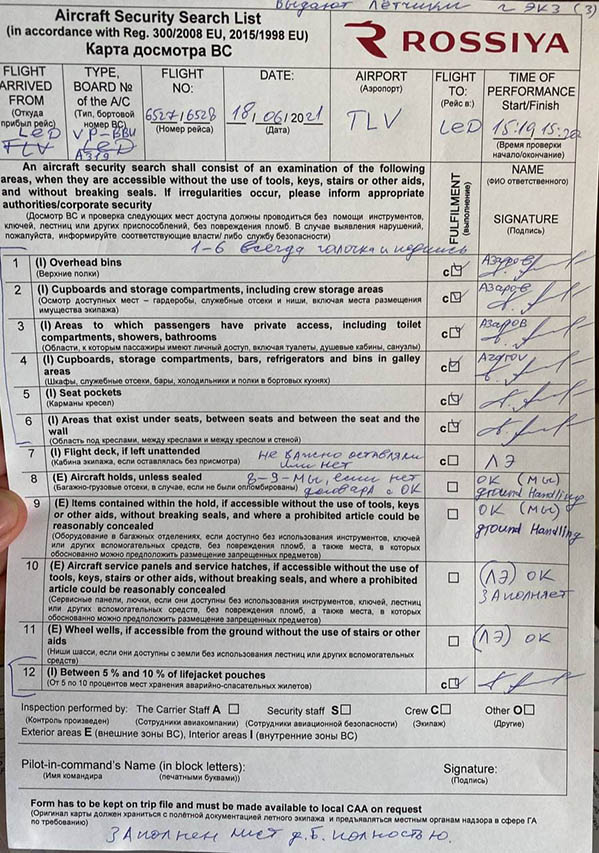 Выдают Лётчики г ЭКЗ (3)
Aircraft Security Search List
(in accordance with Reg. 300/2008 EU, 2015/1998 EU)
Карта досмотра ВС
ROSSIYA
FLIGHT ARRIVED FROM
(Откуда прибыл рейс)
LED
TLV
TYPE, BOARD № of the A/C
(Тип, бортовой номер ВС)
VP-BBU
LED
A319
FLIGHT NO:
6527/6528
(Номер рейса)
DATE:
18/06/2021
(Дата)
AIRPORT
(Аэропорт)
TLV
FLIGHT TO:
(Рейс в:)
LED
TIME OF PERFORMANCE
Start/Finish
15:19
(Время проверки начало/окончание)
An aircraft security search shall consist of an examination of the following
areas, when they are accessible without the use of tools, keys, stairs or other aids,
and without breaking seals. If irregularities occur, please inform appropriate
authorities/corporate security
(Досмотр ВС и проверка следующих мест доступа должны проводиться без помощи инструментов,
ключей, лестниц или других приспособлений, без повреждения пломб. В случае выявления нарушений,
пожалуйста, информируйте соответствующие власти/ либо службу безопасности)
1-6 всегда галочка и подпись
FULFILMENT
(выполнение)
NAME
(ФИО ответственного)
SIGNATURE
(Подпись)
1 (I) Overhead bins
(Верхние полки)
с Азаров
2 (I) Cupboards and storage compartments, including crew storage areas
(Осмотр доступных мест – гардеробы, служебные отсеки и ниши, включая места размещения
имущества экипажа)
с Азаров
3 (I) Areas to which passengers have private access, including toilet
compartments, showers, bathrooms
(Области, к которым пассажиры имеют личный доступ, включая туалеты, душевые кабины, санузлы)
с Азаров
4 (I) Cupboards, storage compartments, bars, refrigerators and bins in galley
areas
(Шкафы, служебные отсеки, бары, холодильники и полки в бортовых кухнях)
с
5 (I) Seat pockets
(Карманы кресел)
с
6 (I) Areas that exist under seats, between seats and between the seat and the
wall
(Область под креслами, между креслами и между креслом и стеной)
с
7 (I) Flight deck, if left unattended
(Кабина экипажа, если оставалась без присмотра)
не важно оставляли
или нет
с ЛЭ
8 (E) Aircraft holds, unless sealed
(Багажно-грузовые отсеки, в случае, если не были опломбированы)
8-9-мы, если нет
договора с ОК
ОК (мы)
ground Handling
9 (E) Items contained within the hold, if accessible without the use of tools, keys
or other aids, without breaking seals, and where a prohibited article could be
reasonably concealed
(Оборудование в багажных отделениях, если доступно без использования инструментов, ключей
или других вспомогательных средств, без повреждения пломб, а также места, в которых
обоснованно можно предположить размещение запрещенных предметов)
ОК (мы)
ground Handling
10 (E) Aircraft service panels and service hatches, if accessible without the use of
tools, keys, stairs or other aids, without breaking seals, and where a prohibited
article could be reasonably concealed
(Сервисные панели, лючки, если они доступны без использования инструментов, ключей, лестниц
или других вспомогательных средств, без повреждения пломб, а также места, в которых
обоснованно можно предположить размещение запрещенных предметов)
(ЛЭ) ОК
Заполняет
11 (E) Wheel wells, if accessible from the ground without the use of stairs or other
aids
(Ниши шасси, если они доступны с земли без использования лестниц или других вспомогательных
средств)
(ЛЭ) ОК
12 (I) Between 5 % and 10 % of lifejacket pouches
(От 5 по 10 процентов мест хранения аварийно-спасательных жилетов)
с
Inspection performed by: The Carrier Staff A Security staff S Crew C Other O
(Контроль произведен) (Сотрудники авиакомпании) (Сотрудники авиационной безопасности) (Экипаж) (Другие)
Exterior areas E (внешние зоны ВС), Interior areas I (внутренние зоны ВС)
Pilot-in-command's Name (in block letters): Signature:
(Имя командира печатными буквами)) (Подпись)
Form has to be kept on trip file and must be made available to local CAA on request
(Оригинал карты должен храниться с полётной документацией летного экипажа и предъявляться местным органам надзора в сфере ГА
по требованию)
Заполнен лист д.б. полностью.